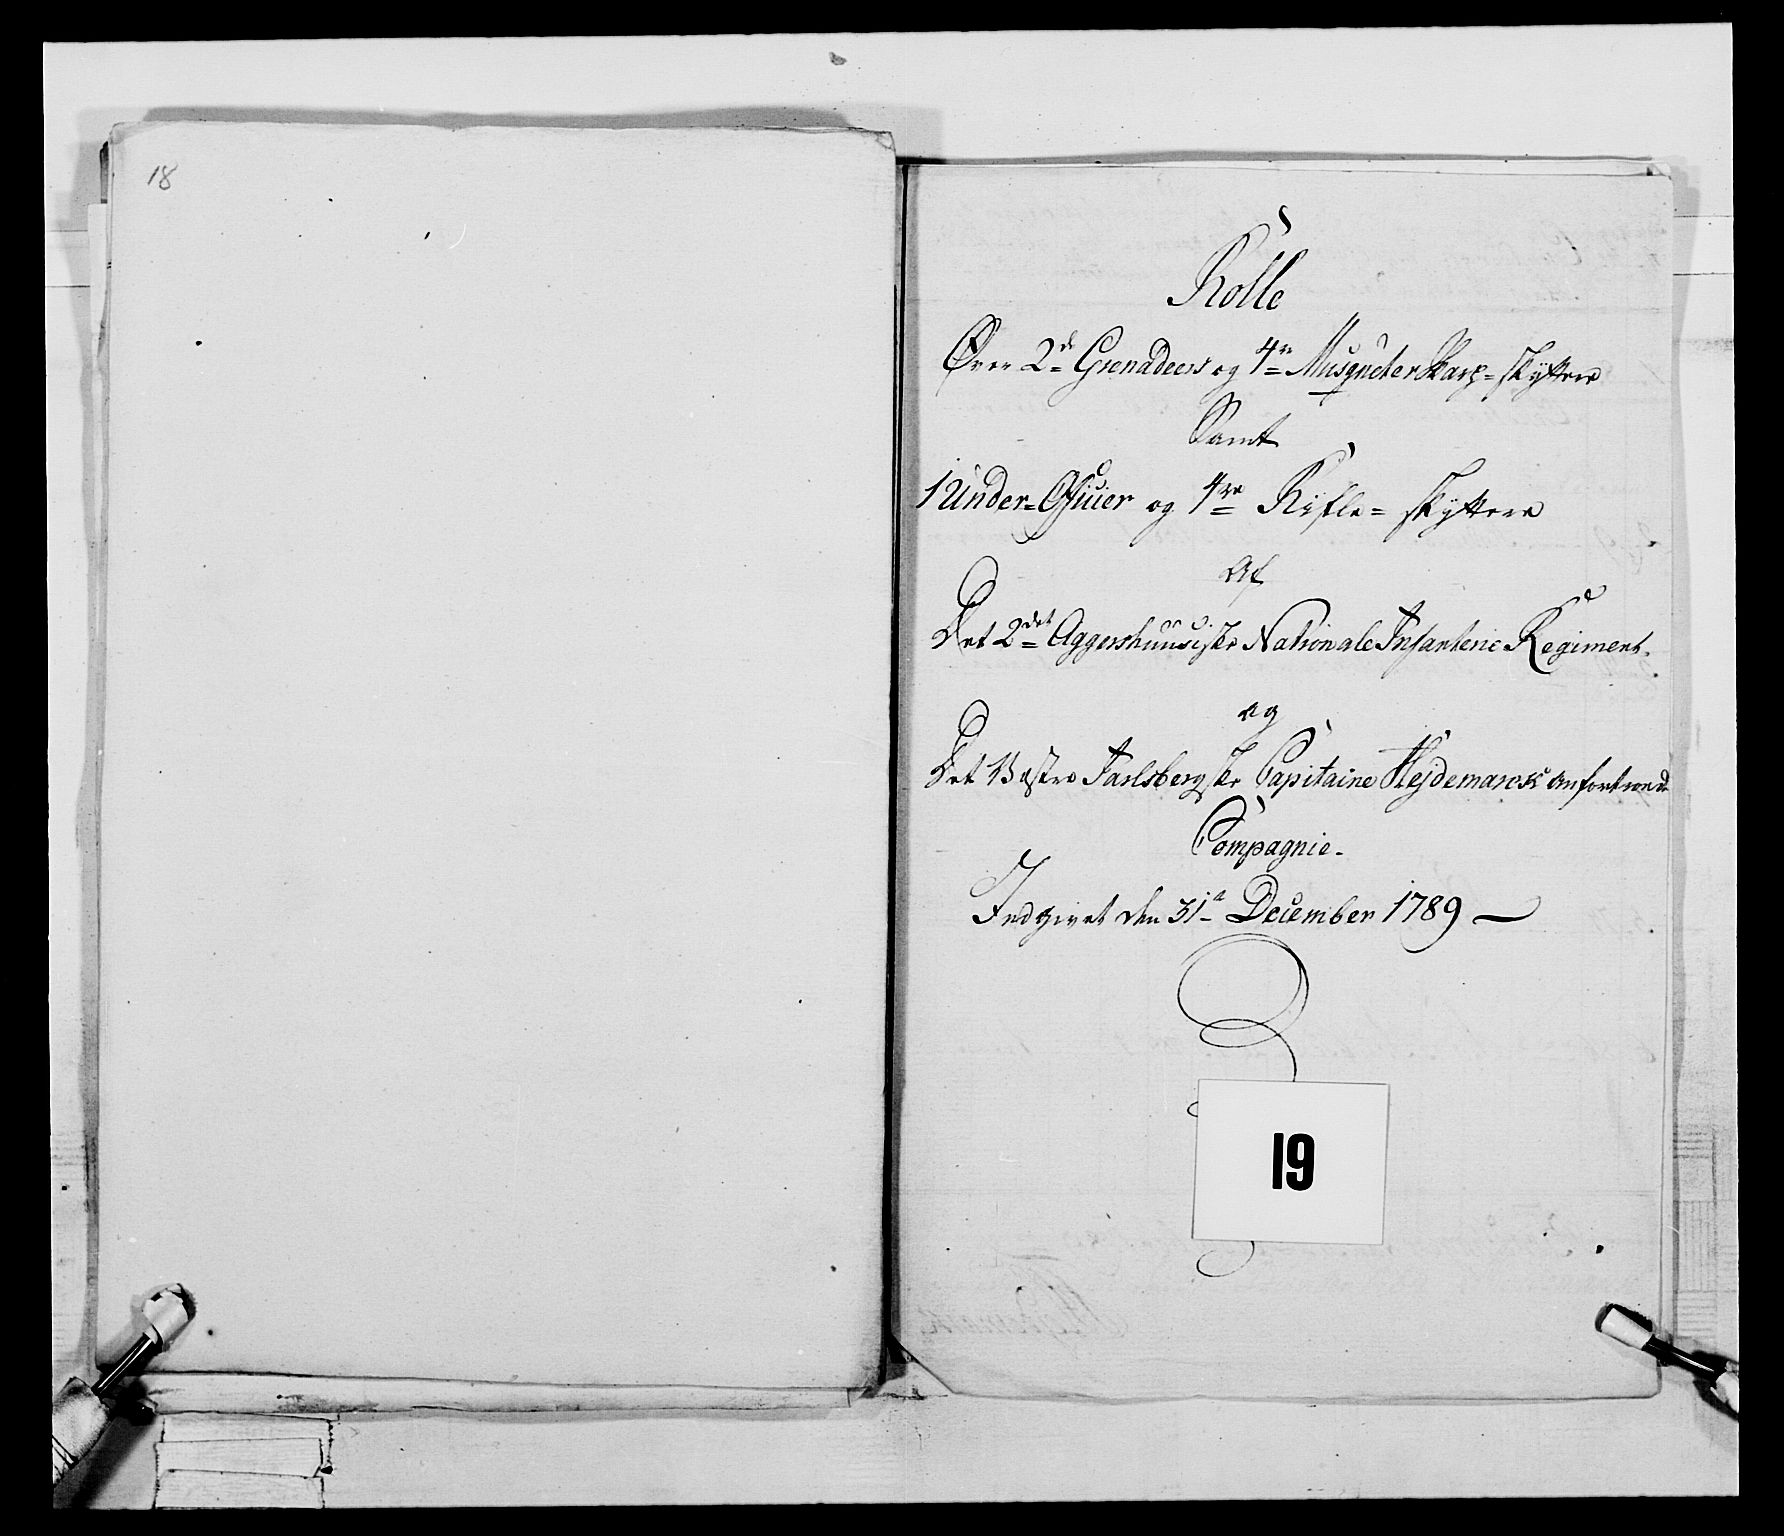 18
Rolle
Over 2de Grenadeers og 4re Musqueter Skarp=skyttere
Samt
1 Under=Officier og 4re Rifle=skyttere
Af
Det 2det Aggershuusiske Nationale Infanterie Regiment.
og
Det Vestre Jarlsbergske Capitaine Hejdemarck anfortroede
Compagnie.
Indgivet den 31te December 1789
19